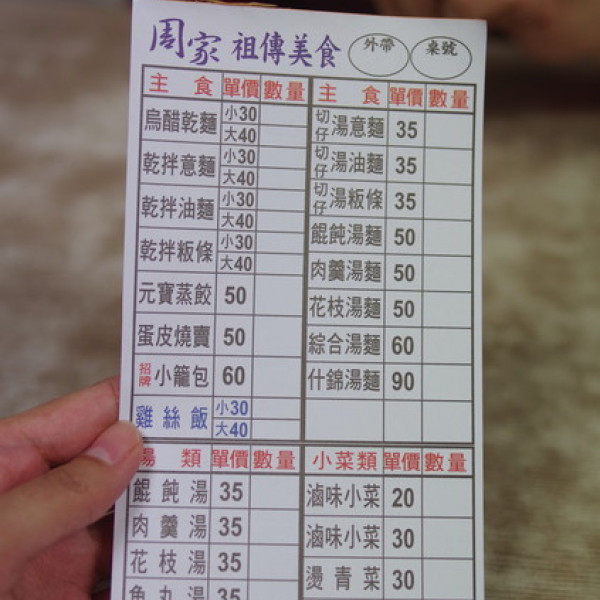 周家 祖傳美食 外帶 桌號
主食 單價 數量 主食 單價 數量
烏醋乾麵 小30 大40 切仔湯意麵 35
乾拌意麵 小30 大40 切仔湯油麵 35
乾拌油麵 小30 大40 切仔湯粄條 35
乾拌粄條 小30 大40 餛飩湯麵 50
元寶蒸餃 50 肉羹湯麵 50
蛋皮燒賣 50 花枝湯麵 50
招牌小籠包 60 綜合湯麵 60
雞絲飯 小30 大40 什錦湯麵 90
湯類 單價 數量 小菜類 單價 數量
餛飩湯 35 滷味小菜 20
肉羹湯 35 滷味小菜 30
花枝湯 35 燙青菜 30
魚丸湯 35